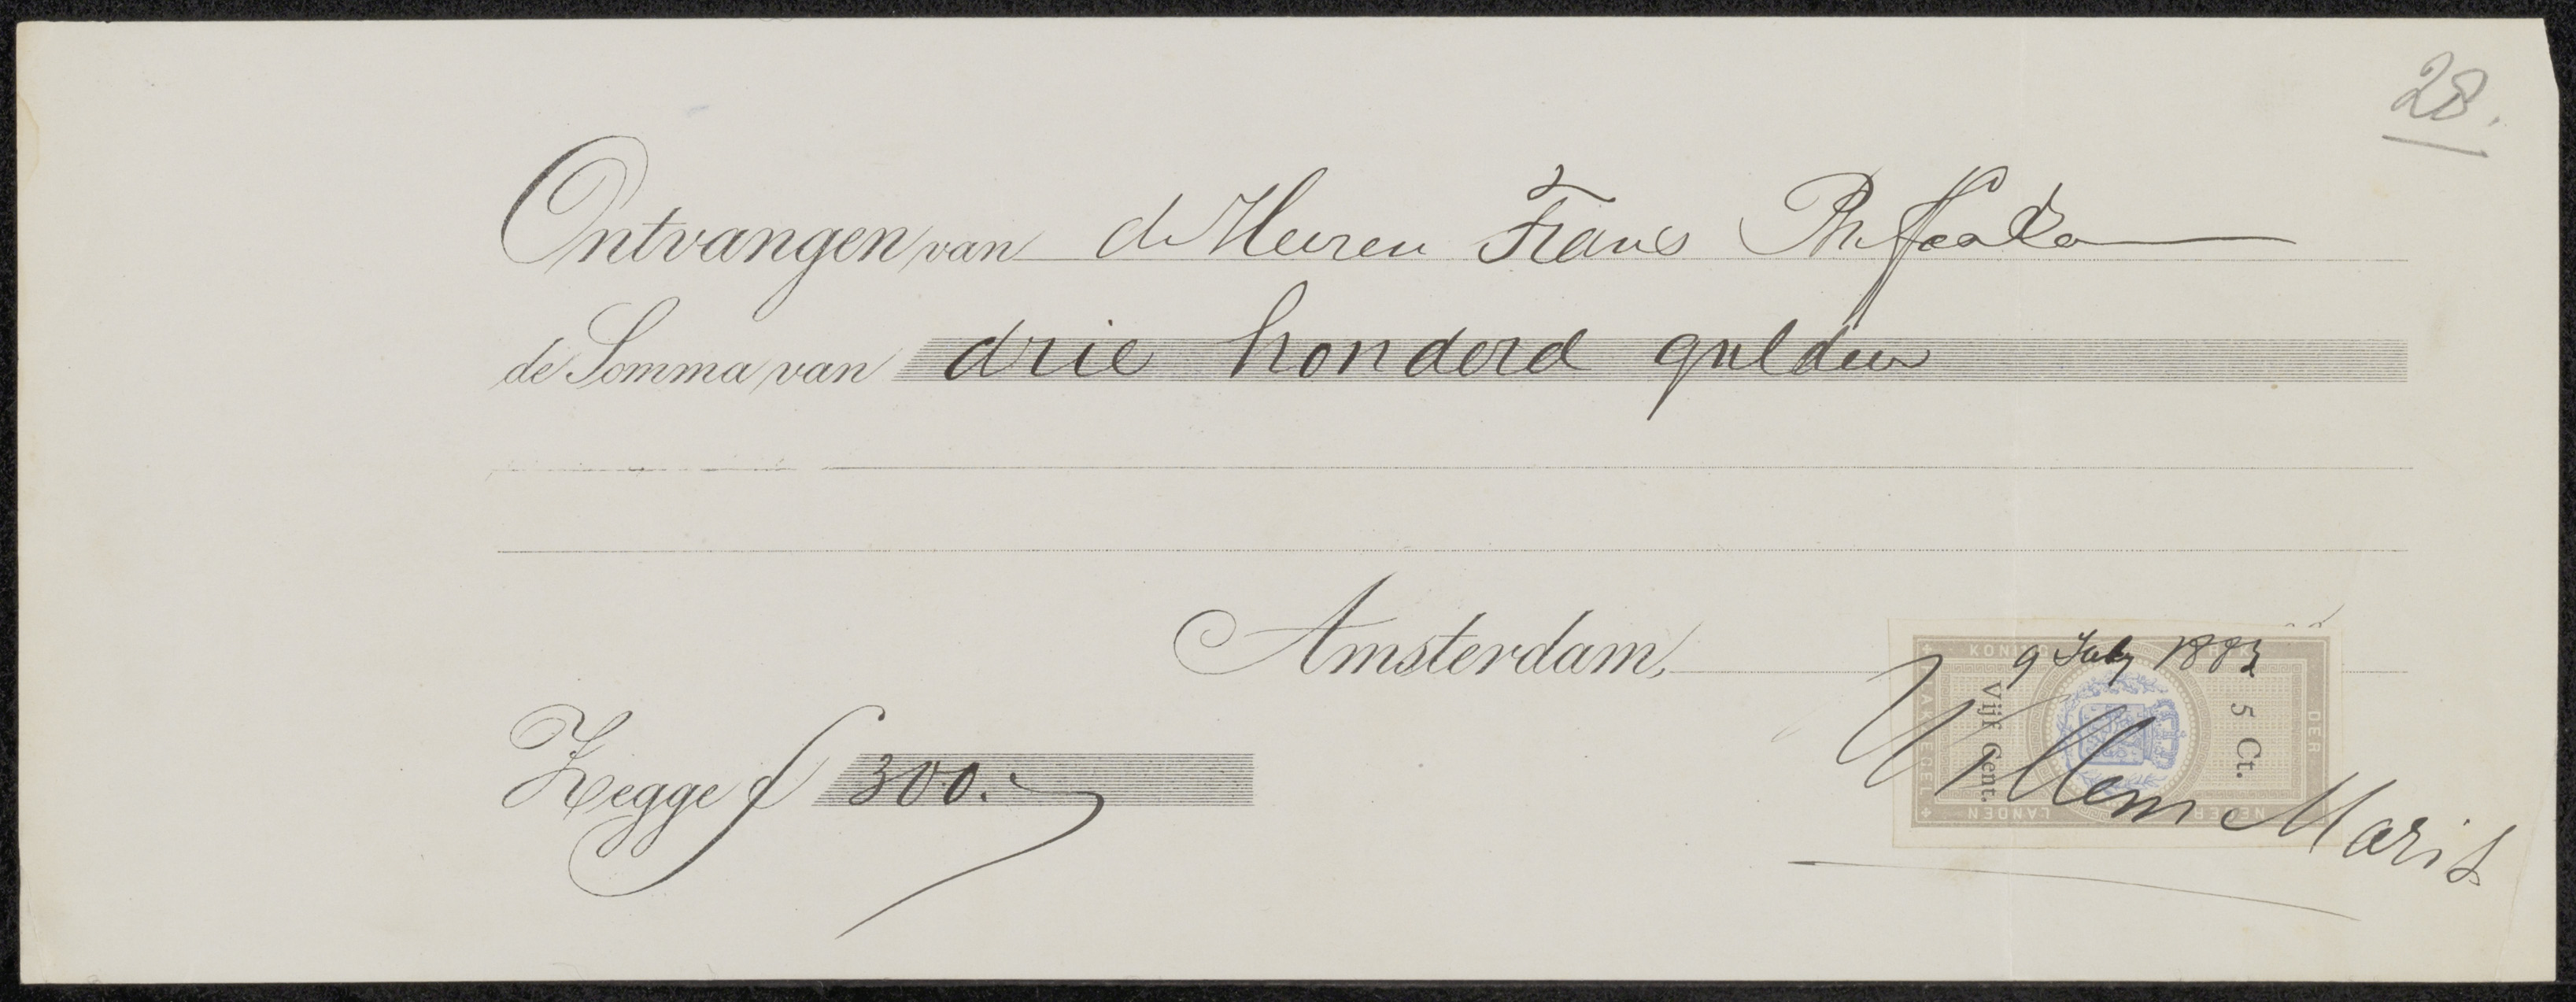 28.
Ontvangen van de Heeren Frans
de Somma van drie honderd gulden
Amsterdam, 9 July 188
KONINGRIJK DER NEDERLANDEN PLAKZEGEL
Vijf Cent. 5 Ct.
Zegge f 300.
Willem Maris